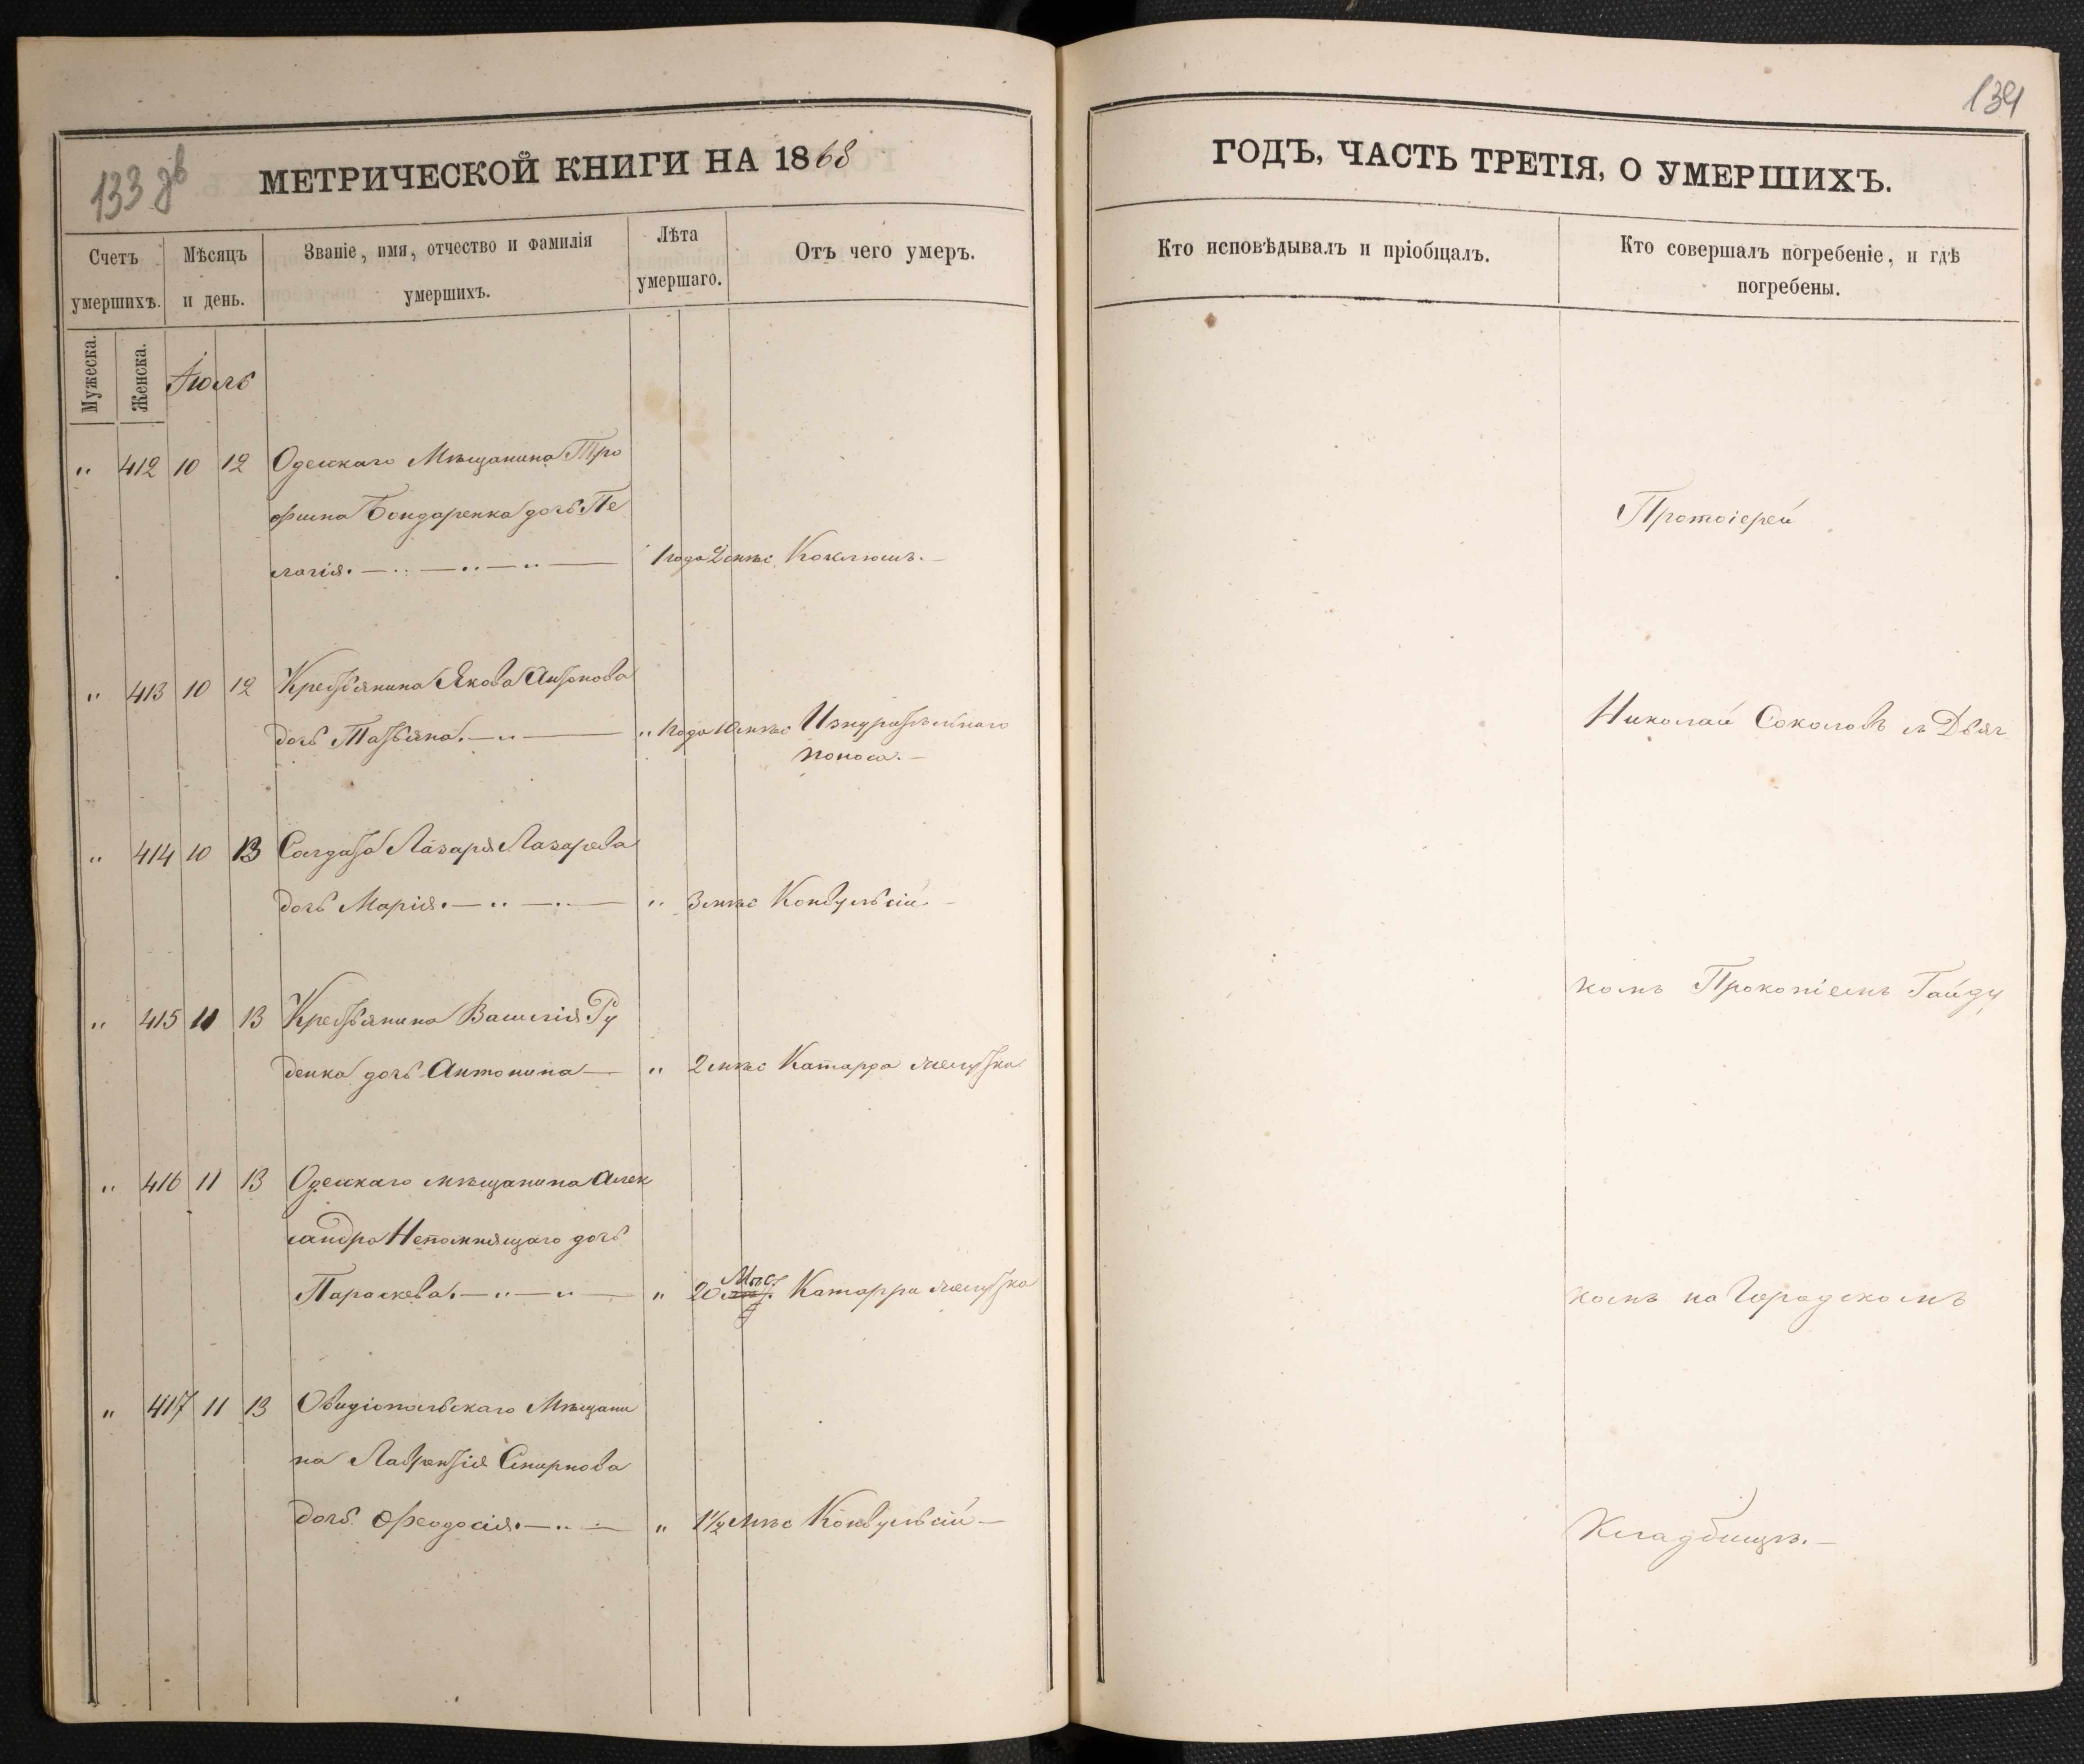 133 зв
МЕТРИЧЕСКОЙ КНИГИ НА 1868
Счетъ умершихъ.
Мѣсяцъ и день.
Званіе, имя, отчество и фамилія умершихъ.
Лѣта умершаго.
Отъ чего умеръ.
Мужеска.
Женска.
Іюль
" 412 10 12 Одесскаго Мѣщанина Тро
фима Бондаренка дочь Пе
лагія. 1 года 2 мѣс. Коклюшъ.
" 413 10 12 Крестьянина Якова Антонова
дочь Татьяна. " 1 года 10 мѣс Изнурительнаго
поноса.
" 414 10 13 Солдата Лазаря Лазарева
дочь Марія. " 3 мѣс Конвульсій
" 415 11 13 Крестьянина Василія Ру
денка дочь Антонина " 2 мѣс Катарра желудка
" 416 11 13 Одесскаго мѣщанина Алек
сандра Непомнящаго дочь
Параскева. " 20 Мѣс. Катарра желудка
" 417 11 13 Овидіопольскаго Мѣщани
на Лаврентія Смирнова
дочь Феодосія. " 1½ мѣс Конвульсій
134
ГОДЪ, ЧАСТЬ ТРЕТІЯ, О УМЕРШИХЪ.
Кто исповѣдывалъ и пріобщалъ.
Кто совершалъ погребеніе, и гдѣ погребены.
Протоіерей
Николай Соколовъ съ Дьяч
комъ Прокопіемъ Гайду
комъ на Городскомъ
Кладбищѣ.